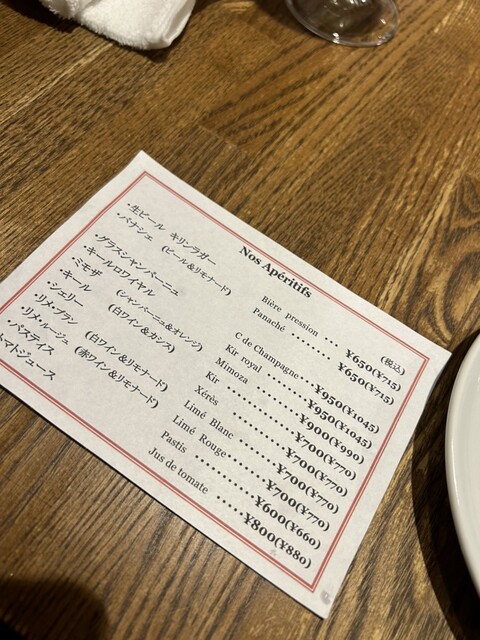 Nos Apéritifs
・生ビール キリンラガー
・パナシェ (ビール&リモナード)
・グラスシャンパーニュ
・キールロワイヤル
・ミモザ (シャンパーニュ&オレンジ)
・キール (白ワイン&カシス)
・シェリー
・リメ・ブラン (白ワイン&リモナード)
・リメ・ルージュ (赤ワイン&リモナード)
・パスティス
マトジュース
Bière pression
Panaché
C de Champagne
Kir royal
Mimoza
Kir
Xérès
Limé Blanc
Limé Rouge
Pastis
Jus de tomate
(税込)
¥650(¥715)
¥650(¥715)
¥950(¥1045)
¥950(¥1045)
¥900(¥990)
¥700(¥770)
¥700(¥770)
¥700(¥770)
¥600(¥660)
¥800(¥880)